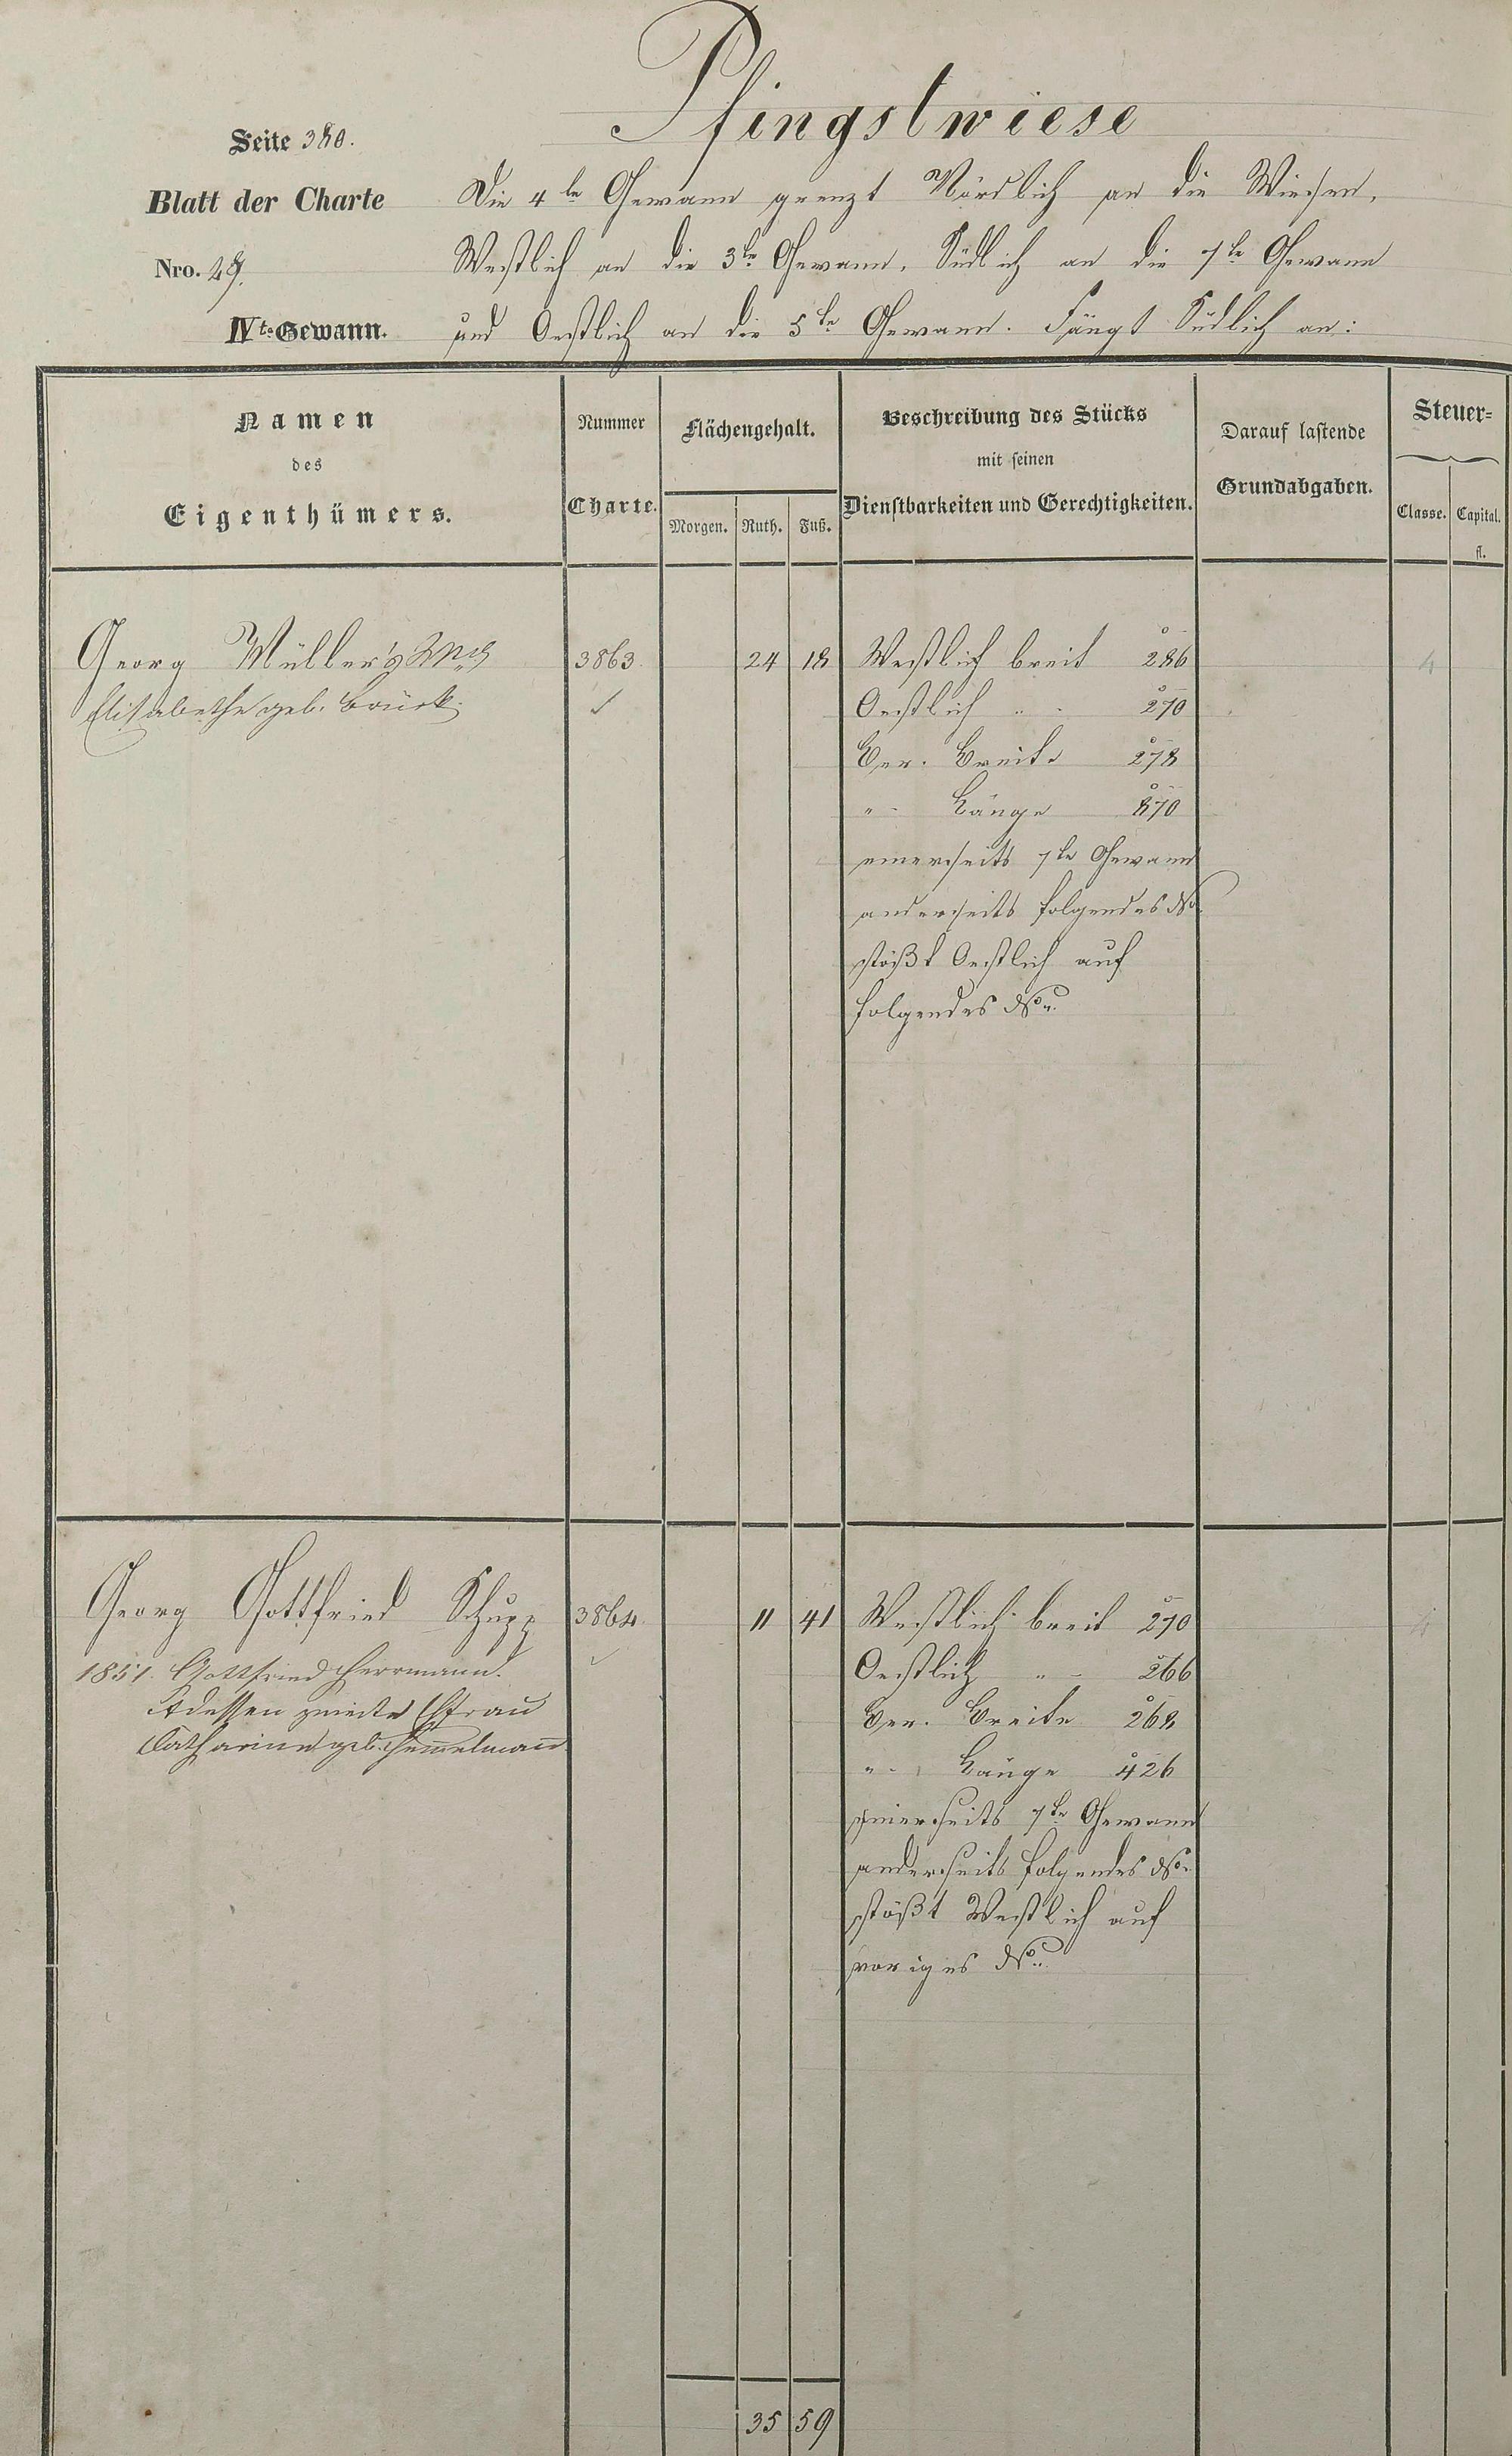 Pfingstwiese
Seite 380.
Blatt der Charte
Nro. 29.
IVte Gewann.
Die 4te Gewann grenzt Nördlich an die Wiesen,
Westlich an die 3te Gewann, Südlich an die 7te Gewann
und Oestlich an die 5te Gewann. Fängt Südlich an:
Namen
des
Eigenthümers.
Nummer
Charte.
Flächengehalt.
Morgen. Ruth. Fuß.
Beschreibung des Stücks
mit seinen
Dienstbarkeiten und Gerechtigkeiten.
Darauf lastende
Grundabgaben.
Steuer=
Classe. Capital.
fl.
Georg Müller's 3863. 24 18 Westlich breit 286 4
Elisabethe geb. Brück. Oestlich " - 270
Ver. Breite 278
" - Länge 870
einerseits 7te Gewann
anderseits folgendes No.
stößt Oestlich auf
folgendes No.
Georg Gottfried Schupp 3864. 11 41 Westlich breit 270 4
1851. Gottfried Herrmann. Oestlich " - 266
dessen zweite Ehfrau Ver. Breite 268
Catharina geb. Hemelmann " - Länge 426
einerseits 7te Gewann
anderseits folgendes No.
stößt Westlich auf
voriges No.
35 59